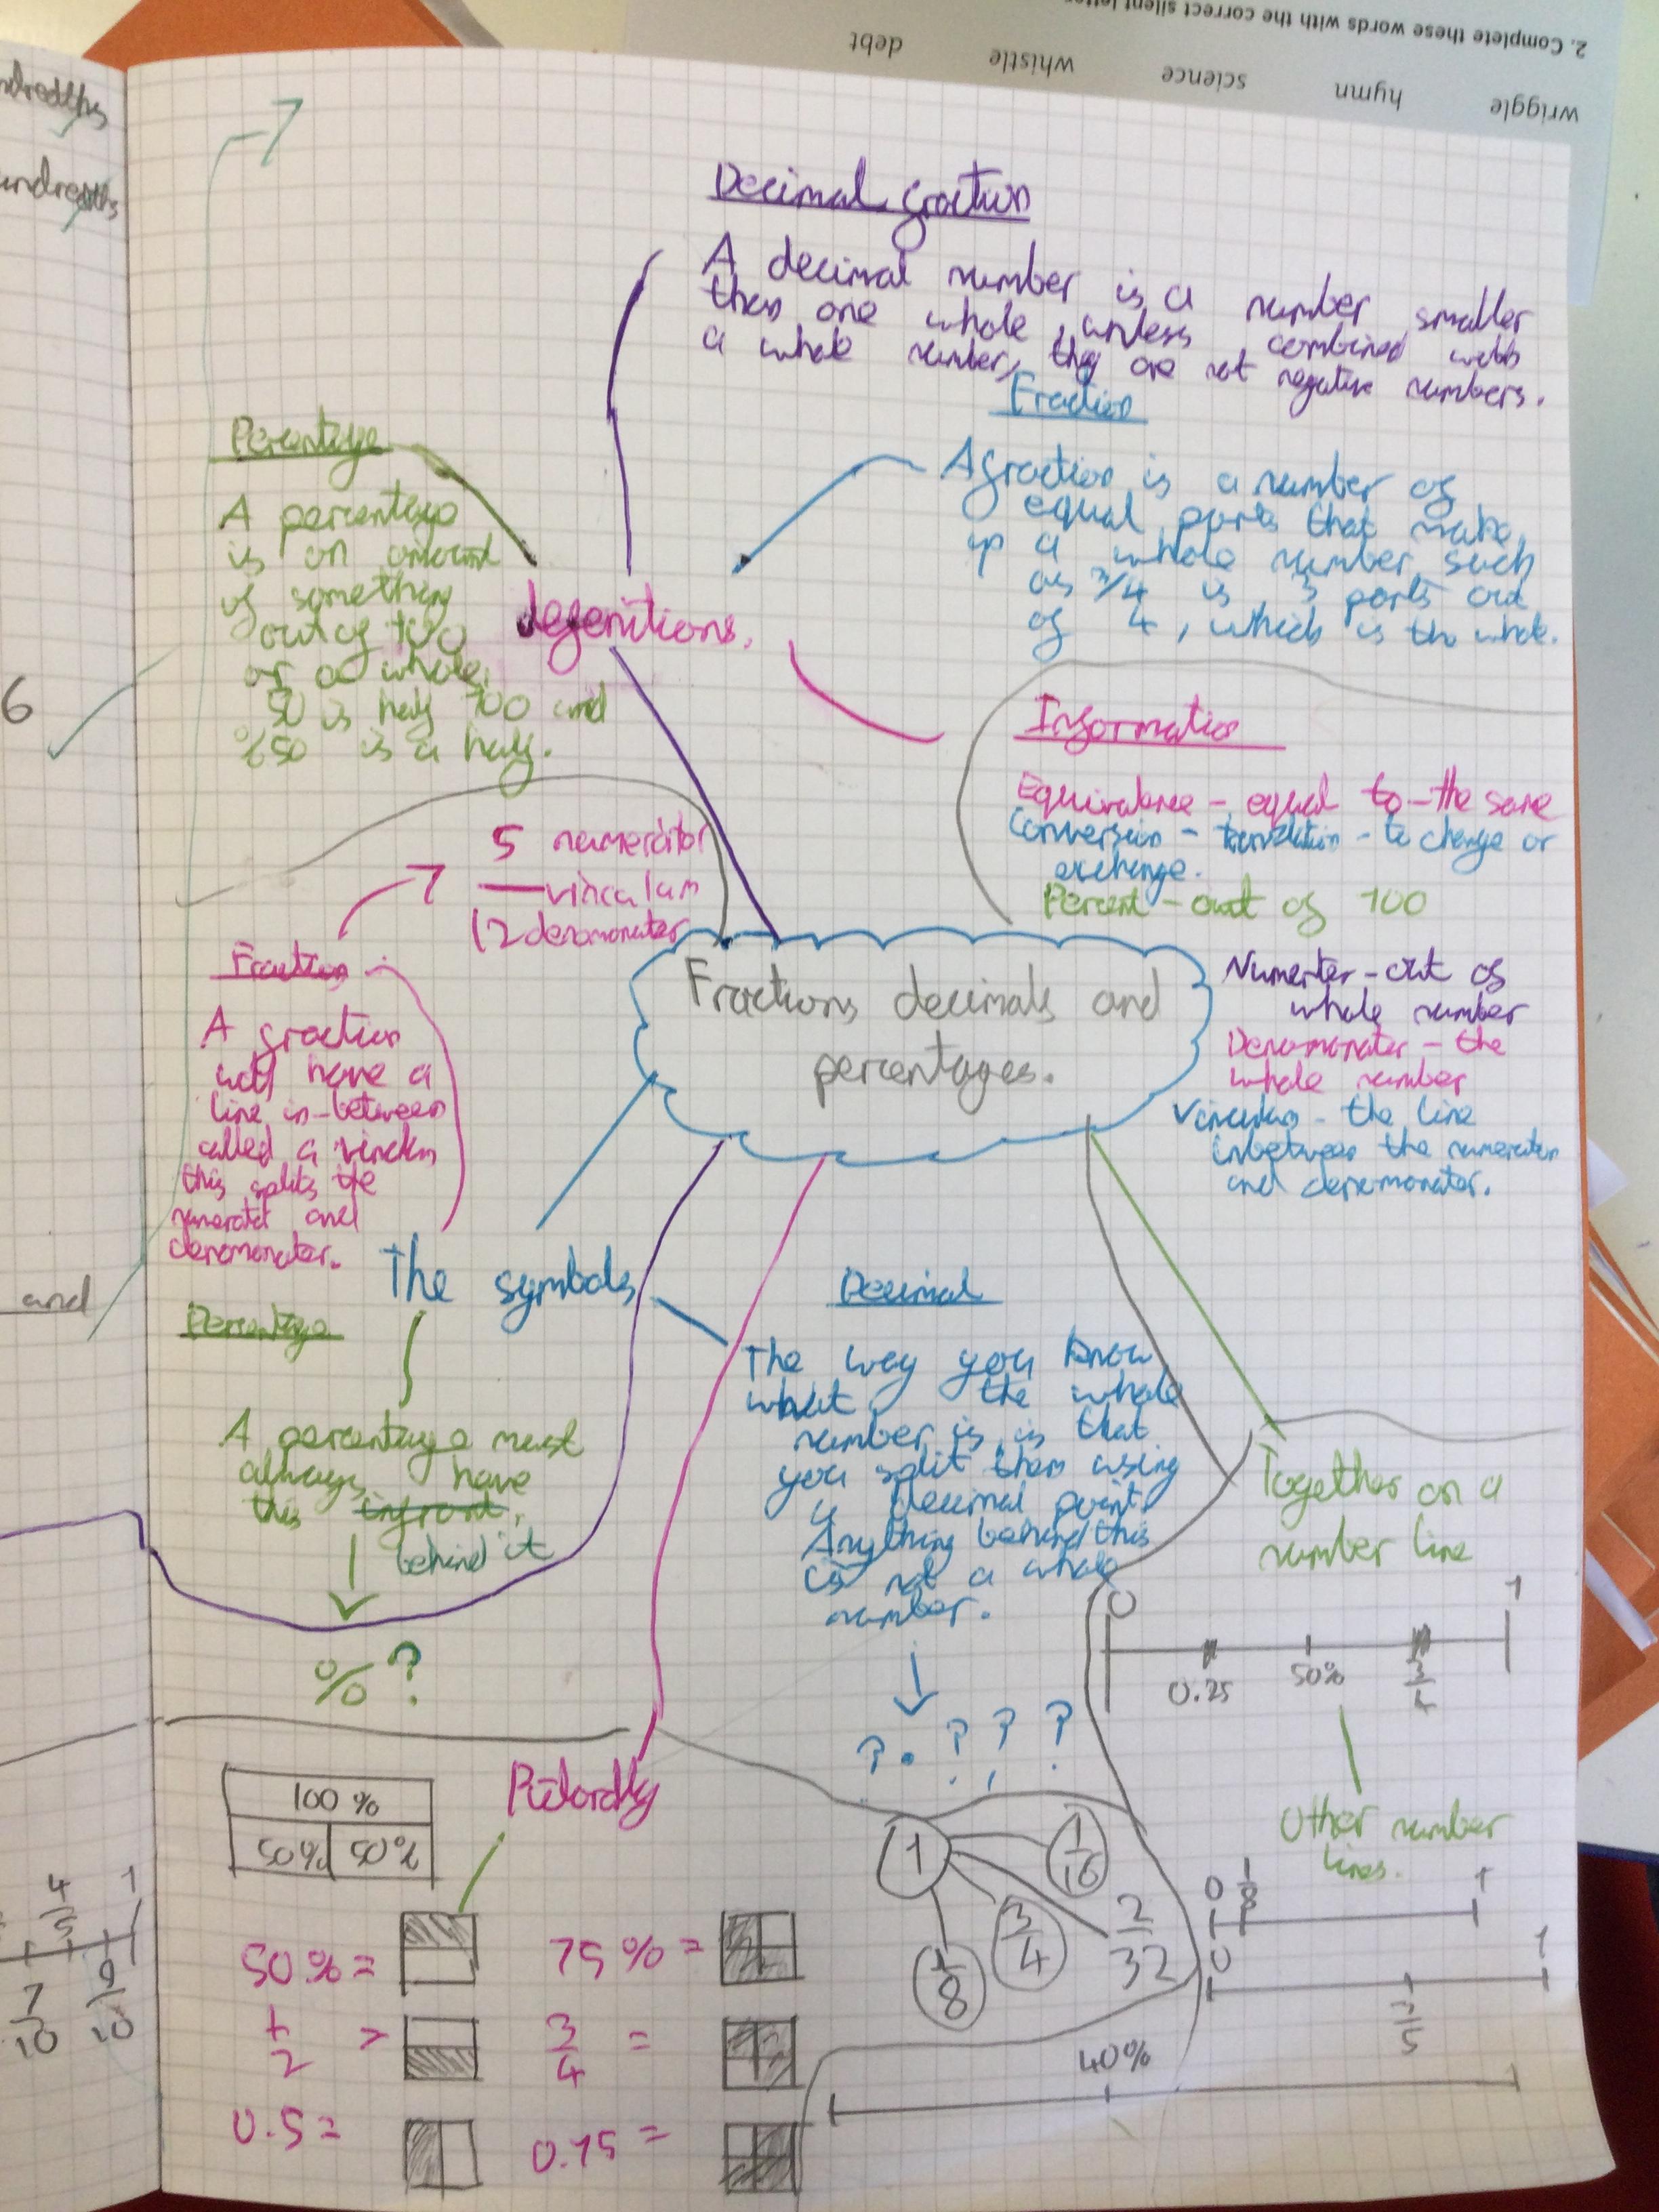 2. Complete these words with the correct silent letter
wriggle hymn science whistle debt
Decimal fraction
A decimal number is a number smaller
than one whole, unless combined with
a whole number, they are not negative numbers.
Fraction
A fraction is a number of
equal parts that make
up a whole number, such
as 3/4 is 3 parts out
of 4, which is the whole.
Percentage
A percentage
is an amount
of something
out of 100
or a whole.
50 is half 100 and
%50 is a half.
defenitions.
Information
Equivalence - equal to - the same
Conversion - translation - to change or
exchange.
Percent - out of 100
Numerter - out of
whole number
Denomonater - the
whole number
Vinculum - the line
inbetween the numerater
and denomonater.
5 numerator
vinculum
12 denomonater
Fractions decimals and
percentages.
Fraction
A fraction
will have a
line in-between
called a vinclum
this splits the
numerator and
denomonater.
The symbols
Percentage
A percentage must
always have
this infront.
behind it
%?
Decimal
The way you know
what the whole
number is, is that
you split them using
a decimal point.
Anything behind this
is not a whole
number.
? . ? ? ?
Together on a
number line
0 1
0.25 50% 3/4
Other number
lines.
0 1/8 1
0 1
3/5
40%
Pictorally
100%
50% 50%
50% =
75% =
1/2 >
3/4 =
0.5 =
0.75 =
1 1/16
3/4 2/32
1/8
ndredths
undredths
6
and
4/5 1
7/10 9/10